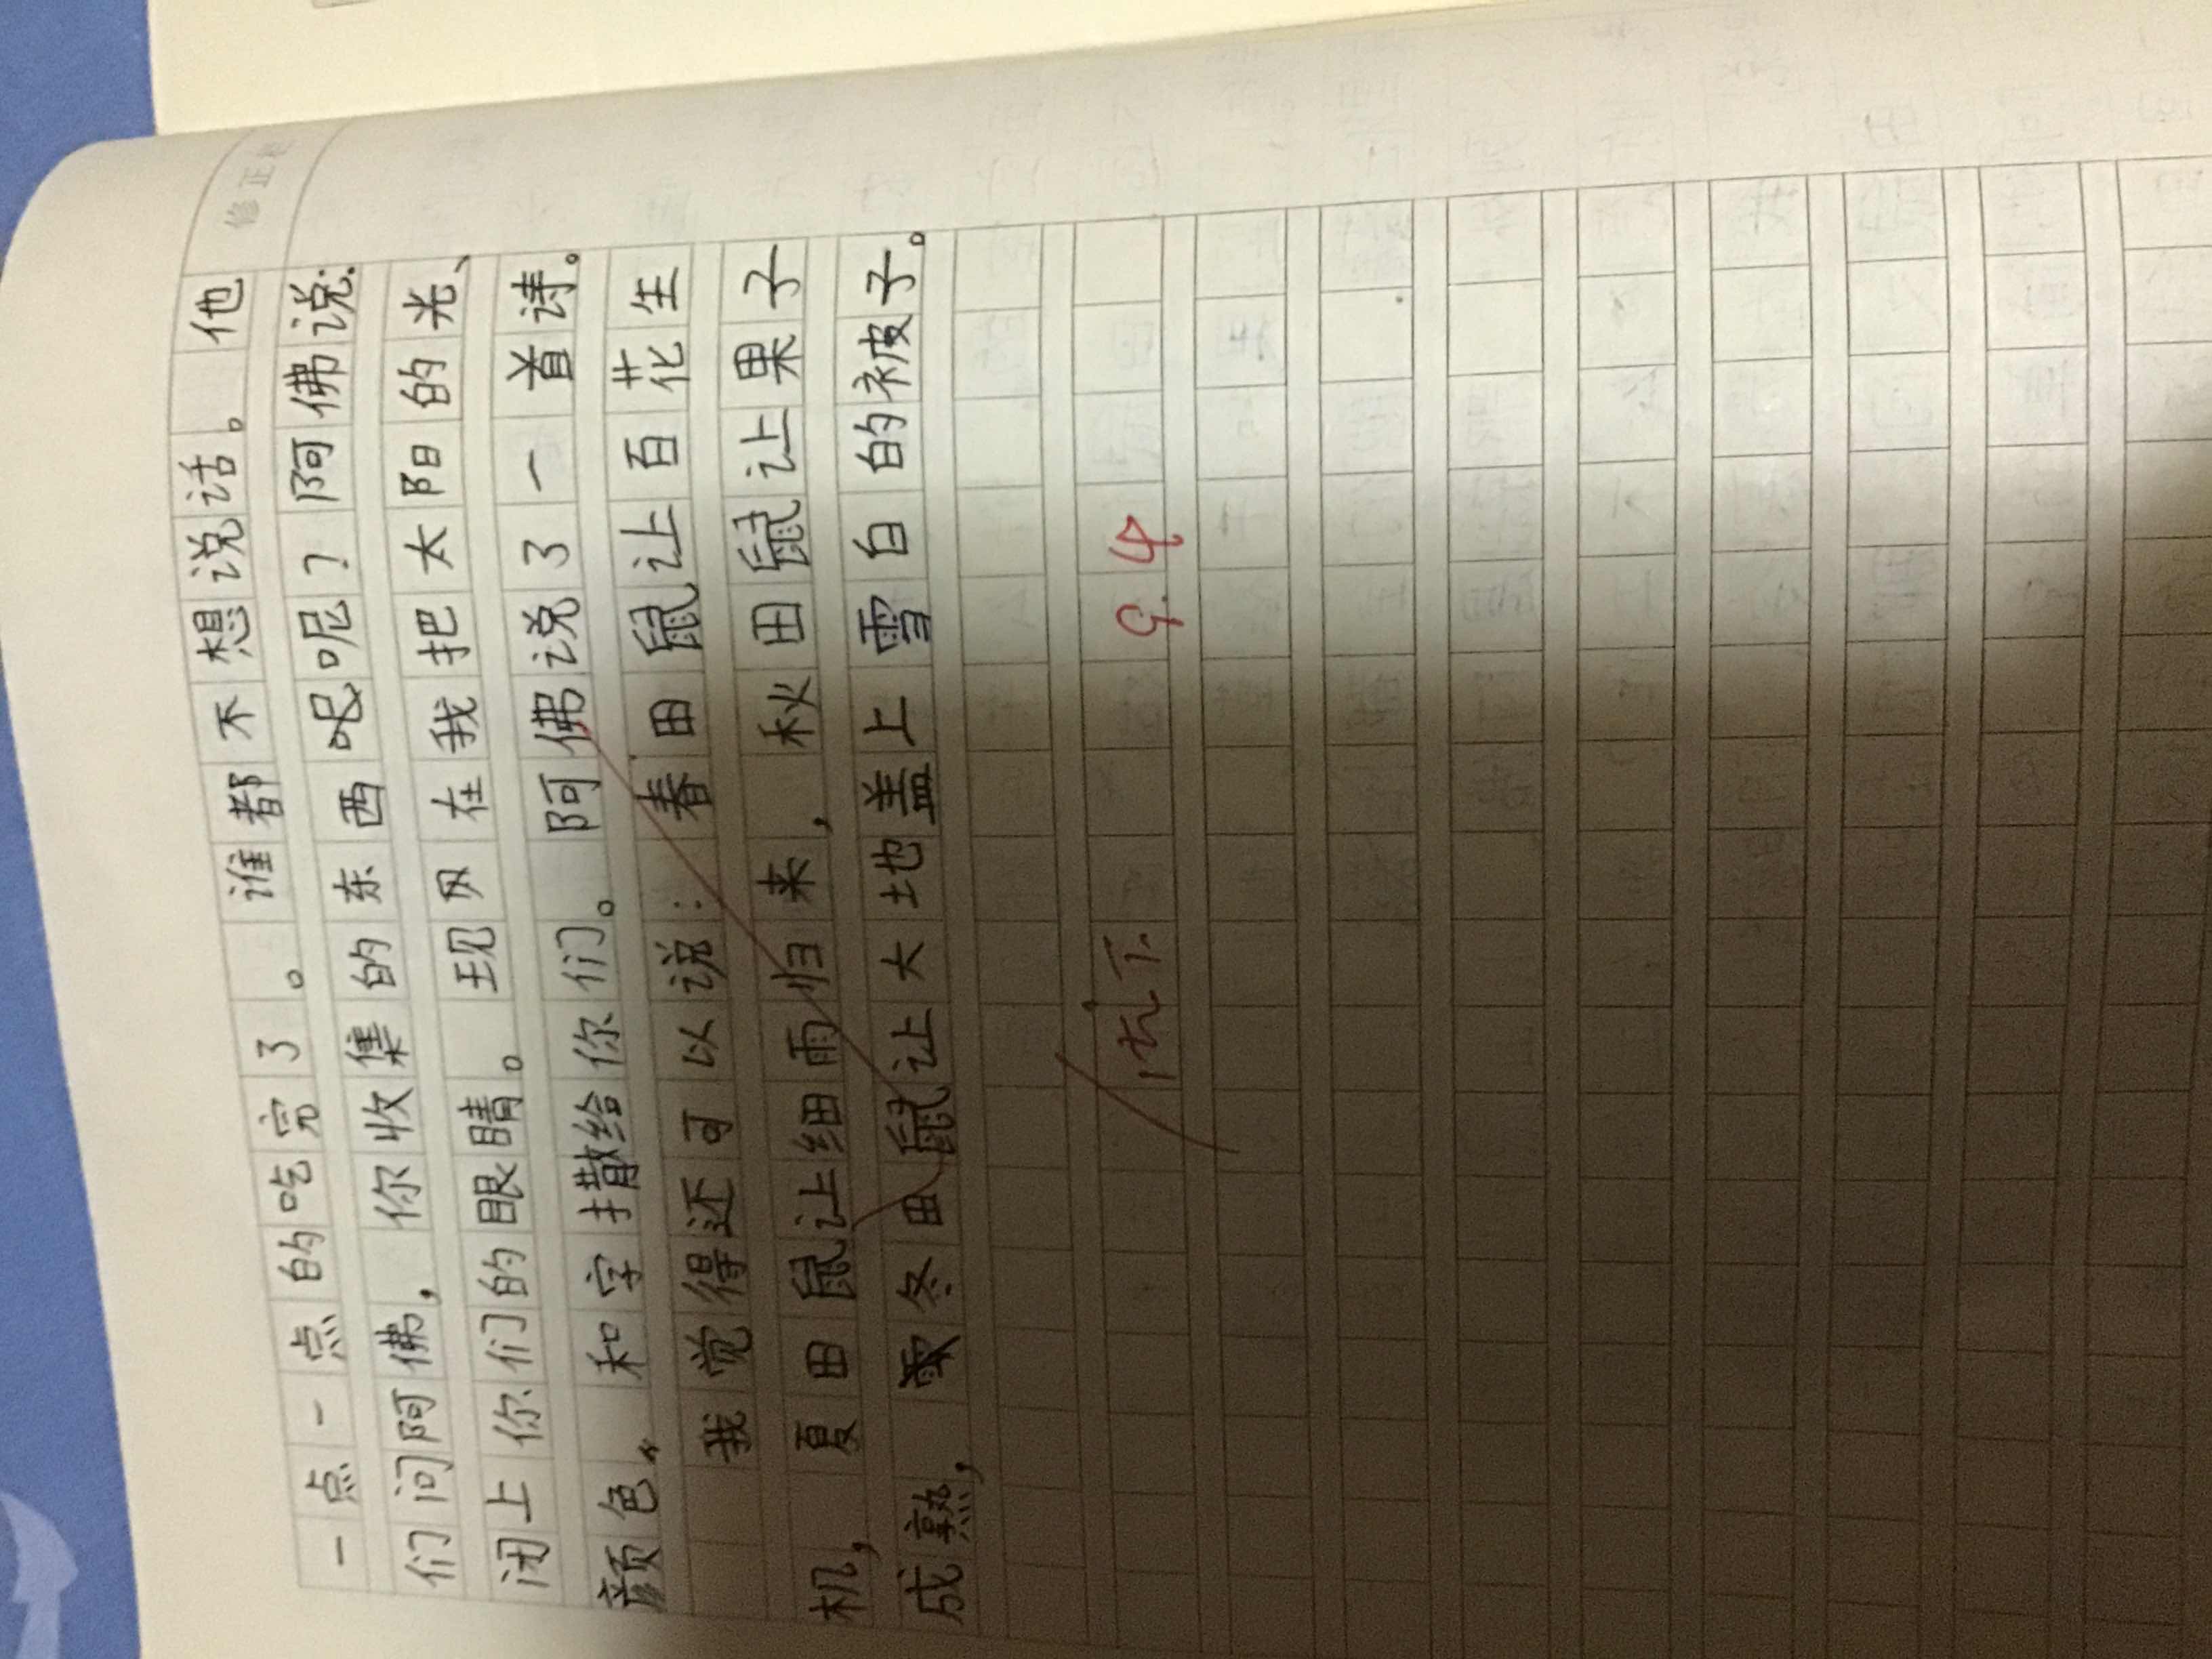 修正
一点一点的吃完了。谁都不想说话。他
们问阿佛,你收集的东西呢呢?阿佛说:
闭上你们的眼睛。现在我把太阳的光、
颜色、和字撒给你们。阿佛说了一首诗。
我觉得还可以说:春田鼠让百花生
机,夏田鼠让细雨归来,秋田鼠让果子
成熟,冬田鼠让大地盖上雪白的被子。
9.4